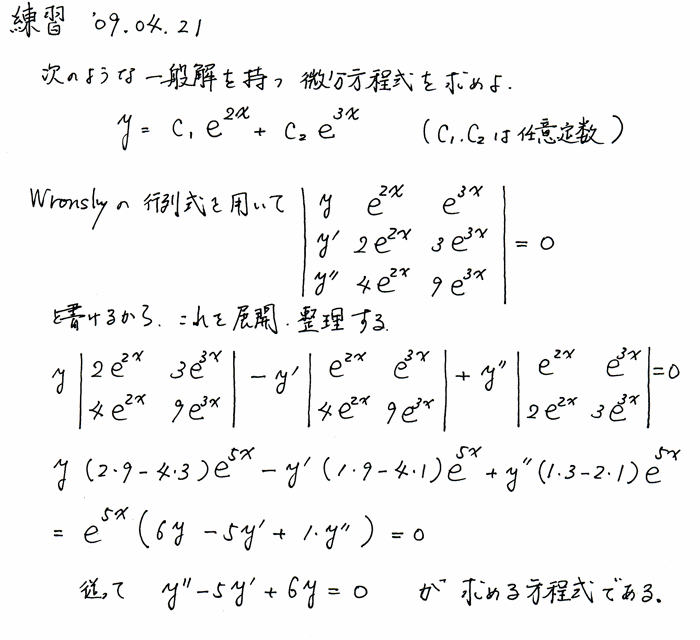 練習 '09.04.21
次のような一般解を持つ微分方程式を求めよ.
y = C₁ e^{2x} + C₂ e^{3x} (C₁. C₂ は任意定数)
Wronskyの行列式を用いて | y e^{2x} e^{3x} |
| y' 2e^{2x} 3e^{3x} | = 0
| y'' 4e^{2x} 9e^{3x} |
と書けるから. これを展開.整理する.
y | 2e^{2x} 3e^{3x} | - y' | e^{2x} e^{3x} | + y'' | e^{2x} e^{3x} | = 0
| 4e^{2x} 9e^{3x} | | 4e^{2x} 9e^{3x} | | 2e^{2x} 3e^{3x} |
y (2・9 - 4・3) e^{5x} - y' (1・9 - 4・1) e^{5x} + y'' (1・3 - 2・1) e^{5x}
= e^{5x} (6y - 5y' + 1・y'') = 0
従って y'' - 5y' + 6y = 0 が求める方程式である.